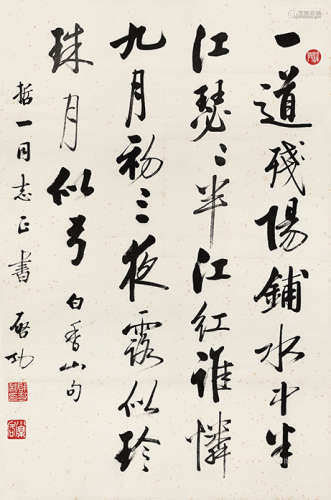 一道残陽鋪水中半
江瑟〻半江红誰憐
九月初三夜露似珍
珠月似弓 白香山句
哲一同志正書 启功